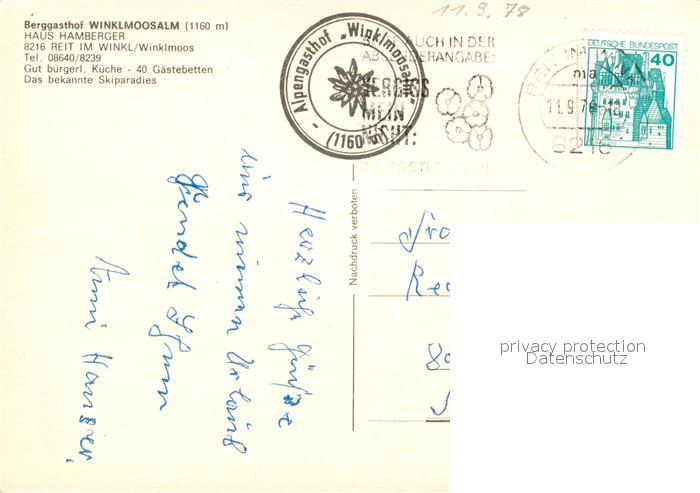 Berggasthof WINKLMOOSALM (1160 m)
HAUS HAMBERGER
8216 REIT IM WINKL/Winklmoos
Tel. 08640/8239
Gut bürgerl. Küche - 40 Gästebetten
Das bekannte Skiparadies
11.9.78
Alpengasthof „Winklmoosalm"
- (1160 m) -
AUCH IN DER
ABSENDERANGABE:
VERGISS
MEIN
NICHT:
DIE POSTLEITZAHL
REIT IM WINKL
11.9.78
8216
DEUTSCHE BUNDESPOST
40
Nachdruck verboten
Herzliche Grüße
aus Urlaub
sendet
Hanser.
privacy protection
Datenschutz